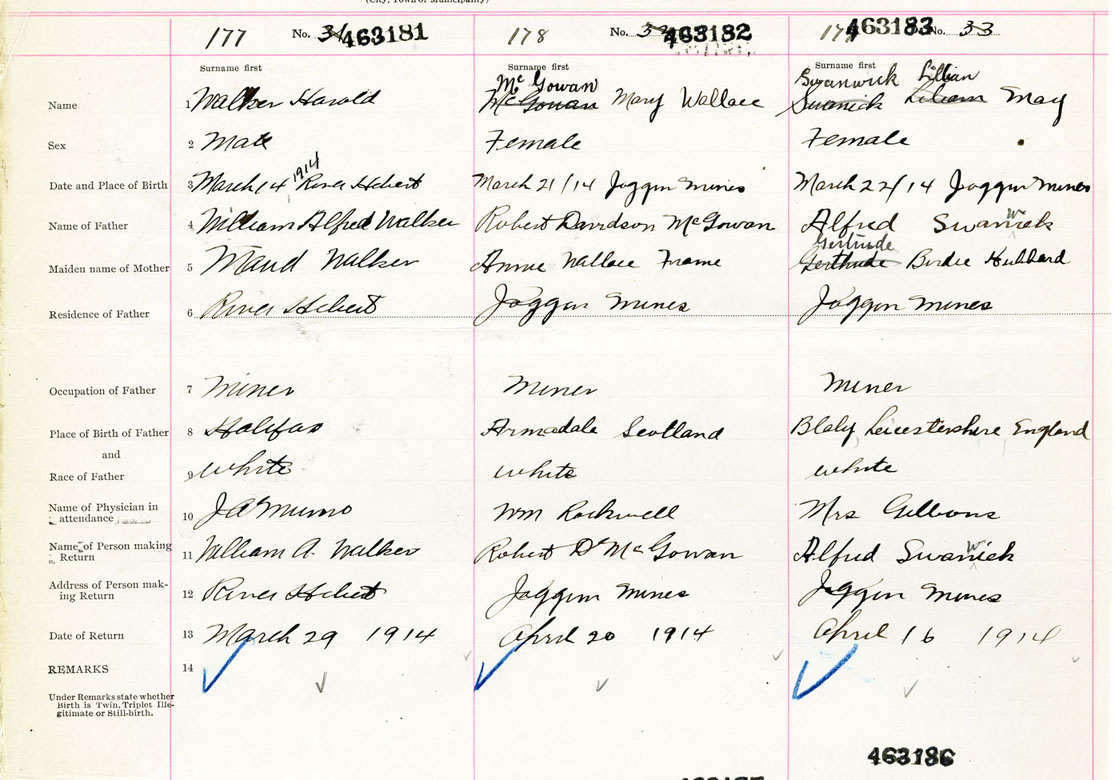 (City, Town or Municipality)
177 No. 31 463181 178 No. 463182 179 463183 No. 33
Surname first Surname first Surname first
Mc Gowan Swanwick Lillian
Name 1 Walker Harold McGowan Mary Wallace Swanick Liliam May
Sex 2 Male Female Female
1914
Date and Place of Birth 3 March 14 River Hebert March 21/14 Joggin Mines March 22/14 Joggin Mines
w
Name of Father 4 William Alfred Walker Robert Davidson McGowan Alfred Swanick
Gertrude
Maiden name of Mother 5 Maud Walker Annie Wallace Frame Gerthude Birdie Hubbard
Residence of Father 6 River Hebert Joggin Mines Joggin Mines
Occupation of Father 7 Miner Miner Miner
Place of Birth of Father 8 Halifax Armadale Scotland Blaby Leicestershire England
and
Race of Father 9 white white white
Name of Physician in
attendance 10 J A Munro Wm Rockwell Mrs Gibbons
Name of Person making
w
Return 11 William A. Walker Robert D McGowan Alfred Swanick
Address of Person mak-
ing Return 12 River Hebert Joggin Mines Joggin Mines
Date of Return 13 March 29 1914 April 20 1914 April 16 1914
REMARKS 14
Under Remarks state whether
Birth is Twin, Triplet Ille-
gitimate or Still-birth.
463186